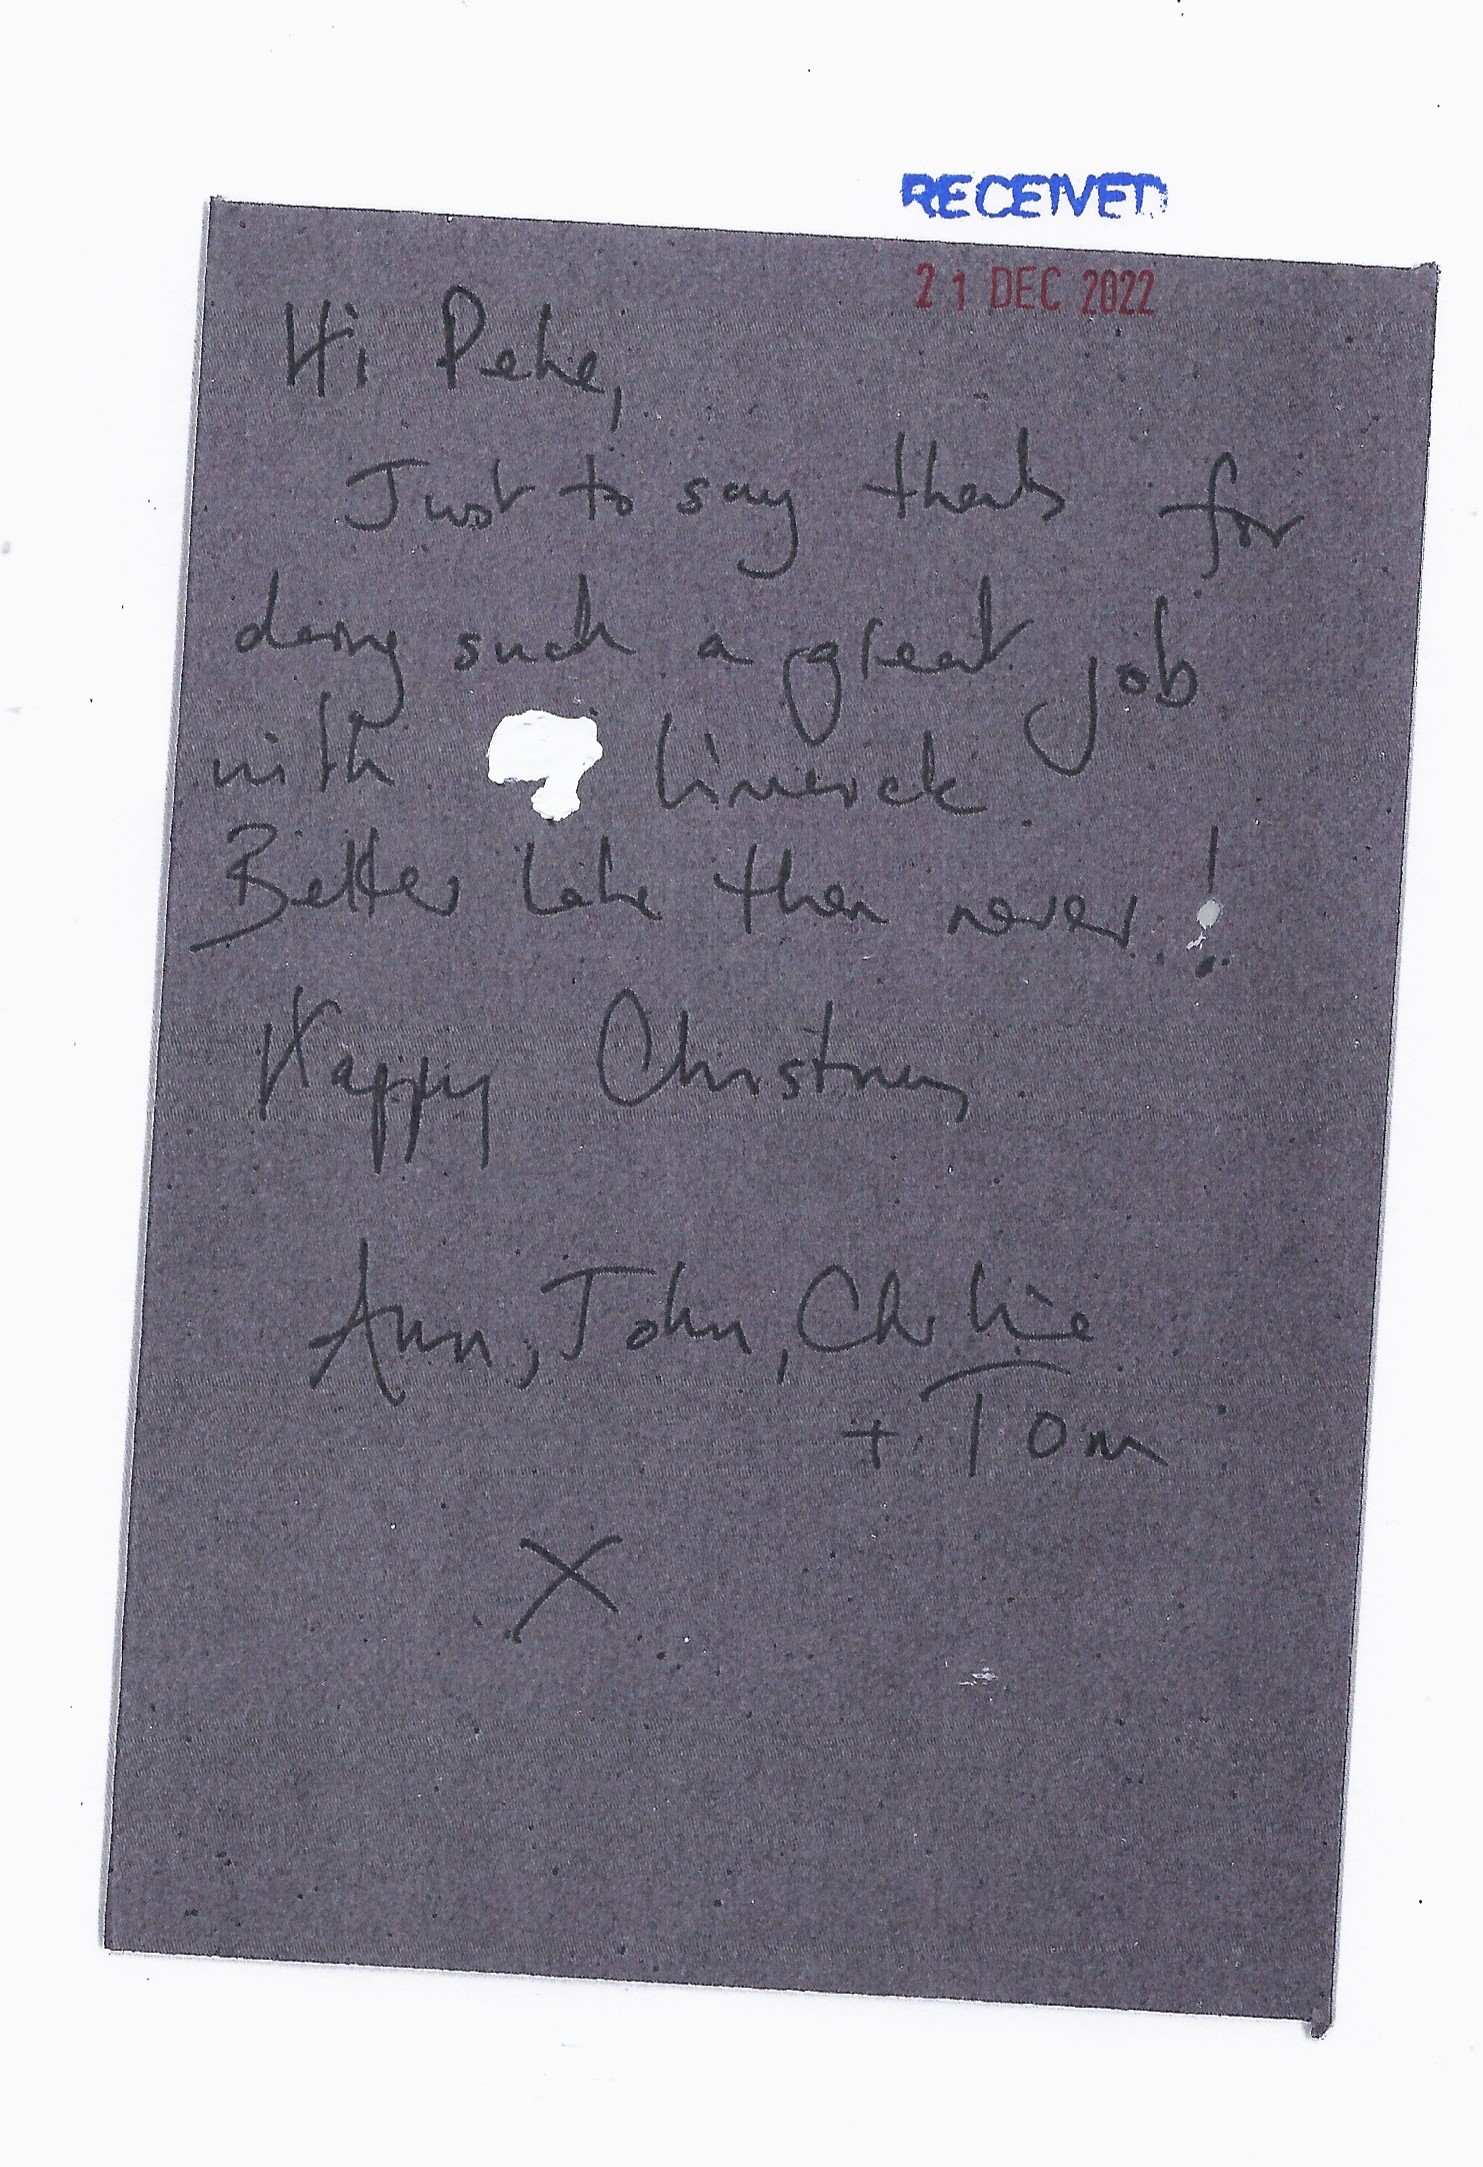 RECEIVED
21 DEC 2022
Hi Pete,
Just to say thanks for
doing such a great job
with limerick.
Better late than never!
Happy Christmas
Ann, John, Charlie
+ Tom
X